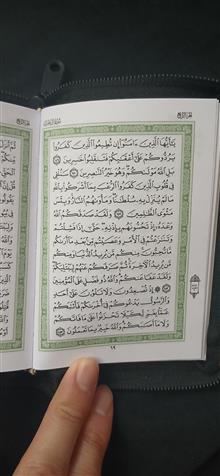 الجزء الرابع سورة آل عمران
يَٰٓأَيُّهَا ٱلَّذِينَ ءَامَنُوٓاْ إِن تُطِيعُواْ ٱلَّذِينَ كَفَرُواْ
يَرُدُّوكُمْ عَلَىٰٓ أَعْقَٰبِكُمْ فَتَنقَلِبُواْ خَٰسِرِينَ ١٤٩
بَلِ ٱللَّهُ مَوْلَىٰكُمْ وَهُوَ خَيْرُ ٱلنَّٰصِرِينَ ١٥٠ سَنُلْقِي
فِي قُلُوبِ ٱلَّذِينَ كَفَرُواْ ٱلرُّعْبَ بِمَآ أَشْرَكُواْ بِٱللَّهِ
مَا لَمْ يُنَزِّلْ بِهِۦ سُلْطَٰنًا وَمَأْوَىٰهُمُ ٱلنَّارُ وَبِئْسَ
مَثْوَى ٱلظَّٰلِمِينَ ١٥١ وَلَقَدْ صَدَقَكُمُ ٱللَّهُ
وَعْدَهُۥٓ إِذْ تَحُسُّونَهُم بِإِذْنِهِۦ حَتَّىٰٓ إِذَا فَشِلْتُمْ
وَتَنَٰزَعْتُمْ فِي ٱلْأَمْرِ وَعَصَيْتُم مِّنۢ بَعْدِ مَآ أَرَىٰكُم
مَّا تُحِبُّونَ مِنكُم مَّن يُرِيدُ ٱلدُّنْيَا وَمِنكُم
مَّن يُرِيدُ ٱلْأٓخِرَةَ ثُمَّ صَرَفَكُمْ عَنْهُمْ لِيَبْتَلِيَكُمْ
وَلَقَدْ عَفَا عَنكُمْ وَٱللَّهُ ذُو فَضْلٍ عَلَى ٱلْمُؤْمِنِينَ
١٥٢ إِذْ تُصْعِدُونَ وَلَا تَلْوُۥنَ عَلَىٰٓ أَحَدٍ
وَٱلرَّسُولُ يَدْعُوكُمْ فِيٓ أُخْرَىٰكُمْ فَأَثَٰبَكُمْ
غَمَّۢا بِغَمٍّ لِّكَيْلَا تَحْزَنُواْ عَلَىٰ مَا فَاتَكُمْ
وَلَا مَآ أَصَٰبَكُمْ وَٱللَّهُ خَبِيرُۢ بِمَا تَعْمَلُونَ ١٥٣
٦٩